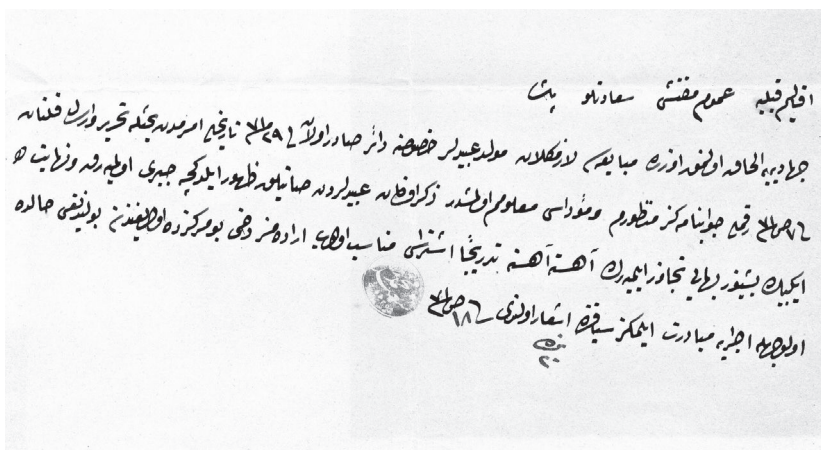 اقاليم قبليه عموم مفتشى سعادتلو پاشا
جهاديه‌يه الحاق اولنمق اوزره مبايعه‌سى لازمكلان مولد عبيدلر خصوصنه دائر صادر اولان فى ٢٩ تاريخلو امرمزدن بحثله تحرير و ارسال قلنان
فى ٧ ص رقملو جوابنامه‌كز منظورم ومؤداسى معلومم اولمشدر ذكر اولنان عبيدلردن صاتيلق ظهور ايلدكجه جبرى اولميه‌رق ونهايت
ايكيبيك بشيوز بهايى تجاوز ايلميه‌رك آهسته آهسته تدريجا اشتراسى مناسب اولوب اراده‌مز دخى بو مركزده اولديغندن بولنديغى حالده
اولوجهله اجراسنه مبادرت ايلمكز سياقنده اشعار اولندى فى ١٨ ص
نمره
٢٠